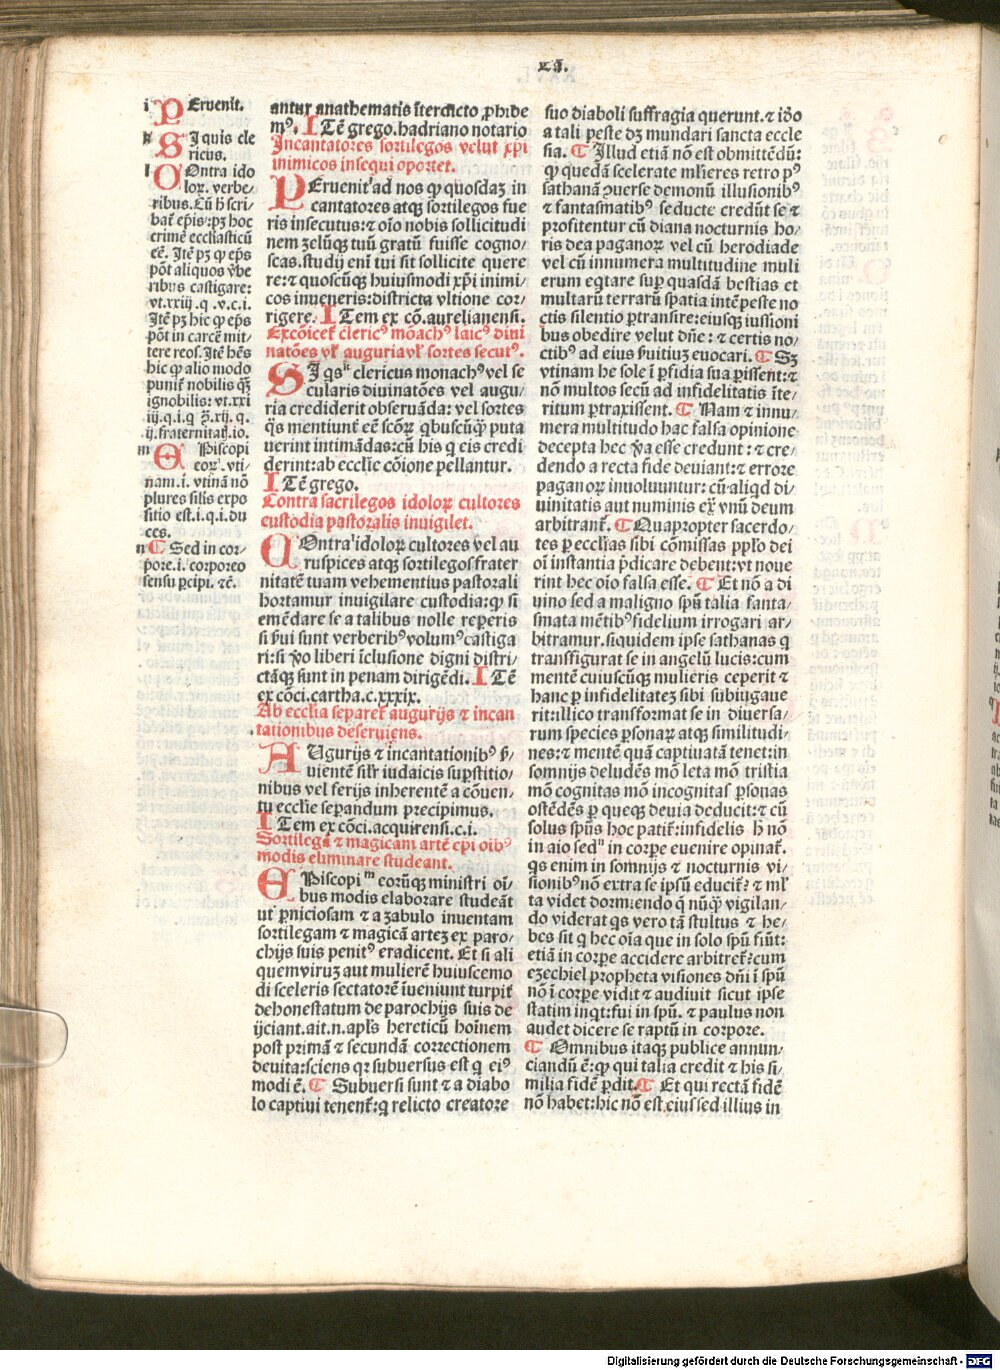 Cā.
i PEruenit.
k SI quis cle
ricus.
l COntra ido
loꝝ. verbe⸗
ribus. Cū h̄ scri⸗
baẗ ep̄is: pꝫ hoc
crimē ecclīasticū
eē. Itē pꝫ ꝙ ep̄s
pōt aliquos v̄be
ribus castigare:
vt.xxiij.q.v.c.i.
Itē pꝫ hic ꝙ ep̄s
pōt in carcē mit⸗
tere reos. Itē hēs
hic ꝙ alio modo
puniẗ nobilis qꝫ
ignobilis: vt.xxi
iij.q.i.q
ij. fraternitati.io.
m EPiscopi
eoꝝ. vti⸗
nam.i. vtinā nō
plures silis expo
sitio est.i.q.i.du
ces.
n ¶ Sed in cor⸗
pore.i. corporeo
sensu ꝑcipi. ꝛē.
antur anathematis īterdicto ꝓhibe
mꝰ. ITē grego. hadriano notario
Incantatores sortilegos velut xp̄i
inimicos insequi oportet.
PEruenit ad nos ꝙ quosdaꝫ in
cantatores atqꝫ sortilegos fue
ris insecutus: ꝛ oīo nobis sollicitudi
nem ꝫelūqꝫ tuū gratū fuisse cogno⸗
scas. studij eni tui sit sollicite quere
re: ꝛ quoscūqꝫ huiusmodi xp̄i inimi⸗
cos inueneris: districta vltione cor⸗
rigere. ITem ex cō. aurelianensi.
Excōiceẗ clericꝰ mōachꝰ laicꝰ diui
natōes vl̓ auguria vl̓ sortes secutꝰ.
SI qs k clericus monachꝰ vel se
cularis diuinatōes vel augu⸗
ria crediderit obseruāda: vel sortes
q̄s mentiunẗ eē scōꝝ qbuscūqꝫ puta
uerint intimādas: cū his q eis credi
derint: ab ecclīe cōione pellantur.
ITē grego.
Contra sacrilegos idoloꝝ cultores
custodia pastoralis inuigilet.
COntra l idoloꝝ cultores vel au
ruspices atqꝫ sortilegos frater
nitatē tuam vehementius pastorali
hortamur inuigilare custodia: ꝙ si
emēdare se a talibus nolle reperis
si ẜui sunt verberibꝰ volumꝰ castiga
ri: si v̄o liberi īclusione digni distri⸗
ctāqꝫ sunt in penam dirigēdi. ITē
ex cōci. cartha.c.xxxix.
Ab ecclīa separeẗ augurijs ꝛ incan
tationibus deseruiens.
AUgurijs ꝛ incantationibꝰ ẜ⸗
uientē sil̓r iudaicis suꝑstitio⸗
nibus vel ferijs inherentē a cōuen⸗
tu ecclīe seꝑandum precipimus.
ITem ex cōci. acquirensi.c.i.
Sortilegā ꝛ magicam artē ep̄i oībꝰ
modis eliminare studeant.
EPiscopi m eorūqꝫ ministri oī⸗
bus modis elaborare studeāt
ut ꝑniciosam ꝛ a ꝫabulo inuentam
sortilegam ꝛ magicā arteꝫ ex paro⸗
chijs suis penitꝰ eradicent. Et si ali
quem viruꝫ aut mulierē huiuscemo
di sceleris sectatorē īueniunt turpiẗ
dehonestatum de parochijs suis de
ijciant. ait.n. apl̓s hereticū hoīnem
post primā ꝛ secundā correctionem
deuita: sciens qꝛ subuersus est q eiꝰ
modi ē. ¶ Subuersi sunt ꝛ a diabo
lo captiui tenenẗ: q relicto creatore
suo diaboli suffragia querunt. ꝛ iō
a tali peste dꝫ mundari sancta eccle
sia. ¶ Illud etiā nō est obmittēdū:
ꝙ quedā scelerate ml̓ieres retro pꝰ
sathanā ꝯuerse demonū illusionibꝰ
ꝛ fantasmatibꝰ seducte credūt se ꝛ
profitentur cū diana nocturnis ho⸗
ris dea paganoꝝ vel cū herodiade
vel cū innumera multitudine muli
erum eqtare suꝑ quasdā bestias et
multarū terrarū spatia intēpeste no
ctis silentio ꝑtransire: eiusqꝫ iussioni
bus obedire velut dn̄e: ꝛ certis no⸗
ctibꝰ ad eius ẜuitiuꝫ euocari. ¶ Sꝫ
vtinam he sole ī ꝑfidia sua ꝑissent: ꝛ
nō multos secū ad infidelitatis īte⸗
ritum ꝑtraxissent. ¶ Nam ꝛ innu⸗
mera multitudo hac falsa opinione
decepta hec v̄a esse credunt: ꝛ cre⸗
dendo a recta fide deuiant: ꝛ errore
paganoꝝ inuoluuntur: cū aliqd di⸗
uinitatis aut numinis ex̄ vnū deum
arbitranẗ. ¶ Quapropter sacerdo⸗
tes ꝑ ecclīas sibi cōmissas pp̄l̓o dei
oī instantia p̄dicare debent: vt noue
rint hec oīo falsa esse. ¶ Et nō a di
uino sed a maligno spū talia fanta⸗
smata mētibꝰ fidelium irrogari ar⸗
bitramur. siquidem ipse sathanas q
transfigurat se in angelū lucis: cum
mentē cuiuscūqꝫ mulieris ceperit ꝛ
hanc ꝑ infidelitateꝫ sibi subiugaue
rit: illico transformat se in diuersa⸗
rum species ꝑsonaꝝ atqꝫ similitudi⸗
nes: ꝛ mentē quā captiuatā tenet: in
somnijs deludēs mō leta mō tristia
mō cognitas mō incognitas ꝑsonas
ostēdēs ꝑ queqꝫ deuia deducit: ꝛ cū
solus spūs hoc patiẗ: infidelis h̄ nō
in aīo sed n in corꝑe euenire opinaẗ.
qs enim in somnijs ꝛ nocturnis vi⸗
sionibꝰ nō extra se ipsū educiẗ? ꝛ ml̓
ta videt dormiendo q̄ nūq̄ vigilan⸗
do viderat qs vero tā stultus ꝛ he⸗
bes sit q hec oīa que in solo spū fiūt:
etiā in corꝑe accidere arbitreẗ? cum
eꝫechiel propheta visiones dn̄i ī spū
nō ī corꝑe vidit ꝛ audiuit sicut ipse
statim inqt: fui in spū. ꝛ paulus non
audet dicere se raptū in corpore.
¶ Omnibus itaqꝫ publice annun⸗
ciandū ē: ꝙ qui talia credit ꝛ his si⸗
milia fidē ꝑdit. ¶ Et qui rectā fidē
nō habet: hic nō est eius sed illius in
Digitalisierung gefördert durch die Deutsche Forschungsgemeinschaft - DFG